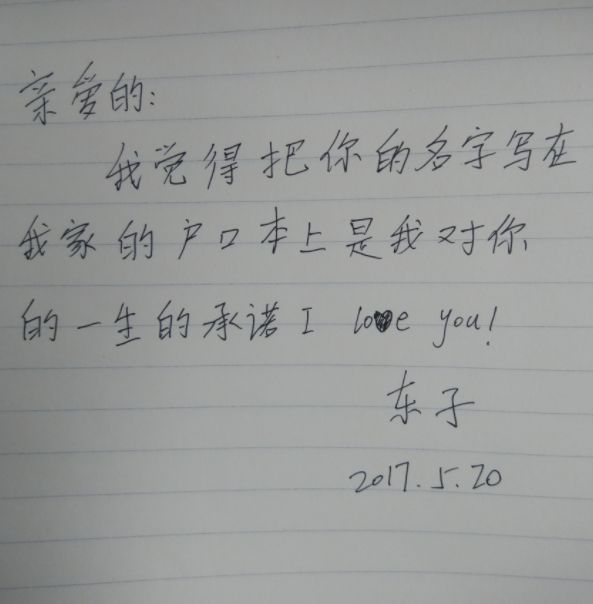 亲爱的:
我觉得把你的名字写在
我家的户口本上是我对你
的一生的承诺I love you!
东子
2017.5.20